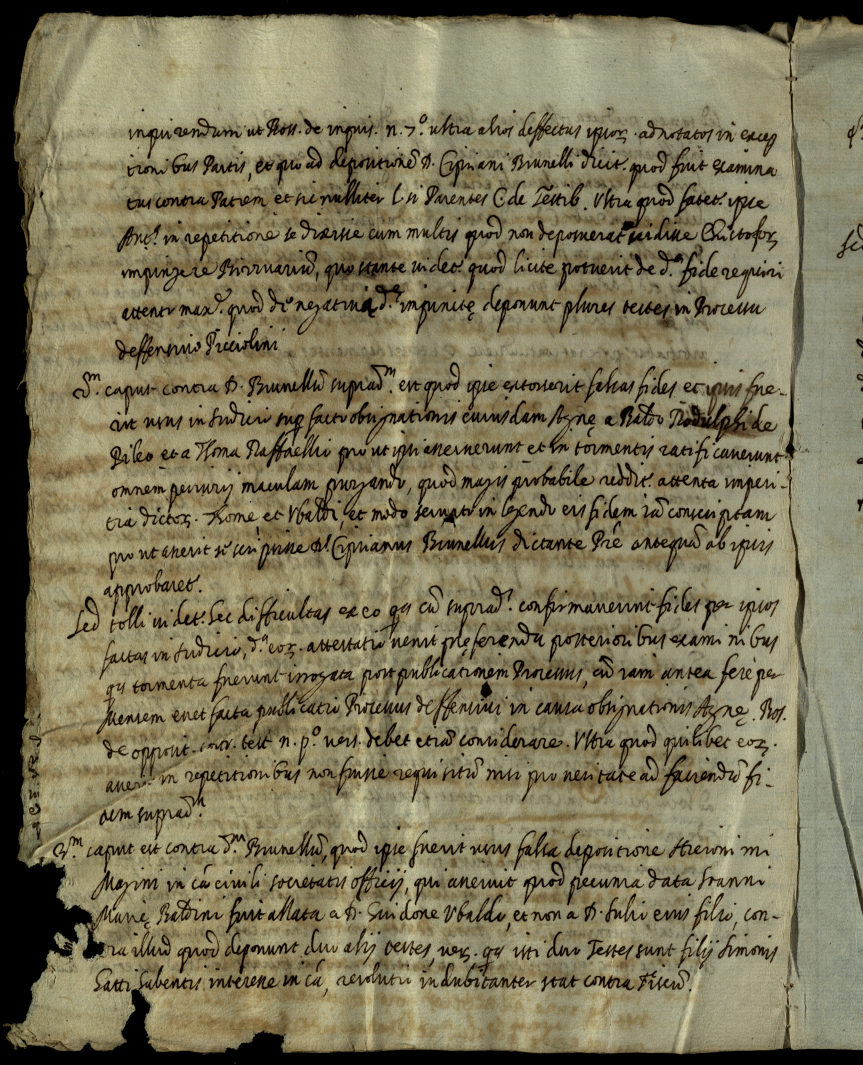 inquirendum ut Ross. de inquis. n. 7.º ultra alios deffectus ipsor. adnotatos in excep
tionibus Partis, et quo ad depositionē D. Cipriani Brunelli dicit. quod fuit examina
tus contra Patrem et sic nulliter l. si Parentes C. de Testib. Ultra quod fatet. ipse
in repetitione se dixisse cum multis quod non deposuerat vidisse
impingere quo stante videt. quod licite potuerit de d.ª fide requiri
attento max.ᵉ quod de negativa d.ª impinitę deponunt plures testes in Processu
deffensivo Picciolini
2.ᵐ caput contra D. Brunellū suprad.ᵐ est quod ipse extorserit falsas fides et ipsis fue-
rit usus in Judicio sup facto obsignationis cuiusdam a Baldo Rodulphi de
Pileo et a Thoma Raffaellio prout ipsi asseruerunt et in tormentis ratificaverunt
omnem periurij maculam purgando, quod magis probabile reddit. attenta imperi-
tia dictor. Thome et Ubaldi, et modo servato in legendo eis fidem iā conscriptam
prout asserit se scripsisse D. Ciprianus Brunellus dictante Prē antequā ab ipsis
approbaret.
Sed tolli videt. hec difficultas ex eo qª cū suprad.ⁱ confirmaverint fides per ipsos
factas in Judicio, d.ª eor. attestatio venit pręferenda posterioribus examinibus
qª tormenta fuerunt irrogata post publicationem Processus, cū iam antea fere per
mensem esset facta publicatio Processus deffensivi in causa obsignationis Ros.
de opposit. contr. test. n. p.º vers. debet etiā considerare. Ultra quod quilibet eor.
asserit in repetitionibus non fuisse requisitū nisi pro veritate ad faciendū fi-
dem suprad.ᵐ
3.ᵐ caput est contra d.ᵐ Brunellū, quod ipse fuerit usus falsa depositione Hieronimi
Magini in cā civili societatis officij, qui asseruit quod pecunia data Joanni
Marię Baldini fuit allata a D. Guidone Ubaldo, et non a D. Julio eius filio, con-
tra illud quod deponunt duo alij testes, ver. qª isti duo Testes sunt filij Simonis
Gatti habentis interesse in cā, resolutio indubitanter stat contra Fiscū.